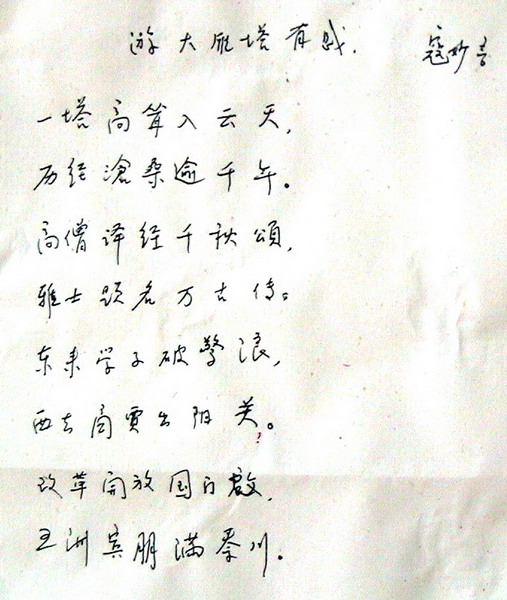 游大雁塔有感. 寇妙
一塔高耸入云天,
历经滄桑逾千年。
高僧译经千秋頌,
雅士题名万古传。
东来学子破驚浪,
西去商贾出阳关。
?
改革开放国门啟,
五洲宾朋满秦川。